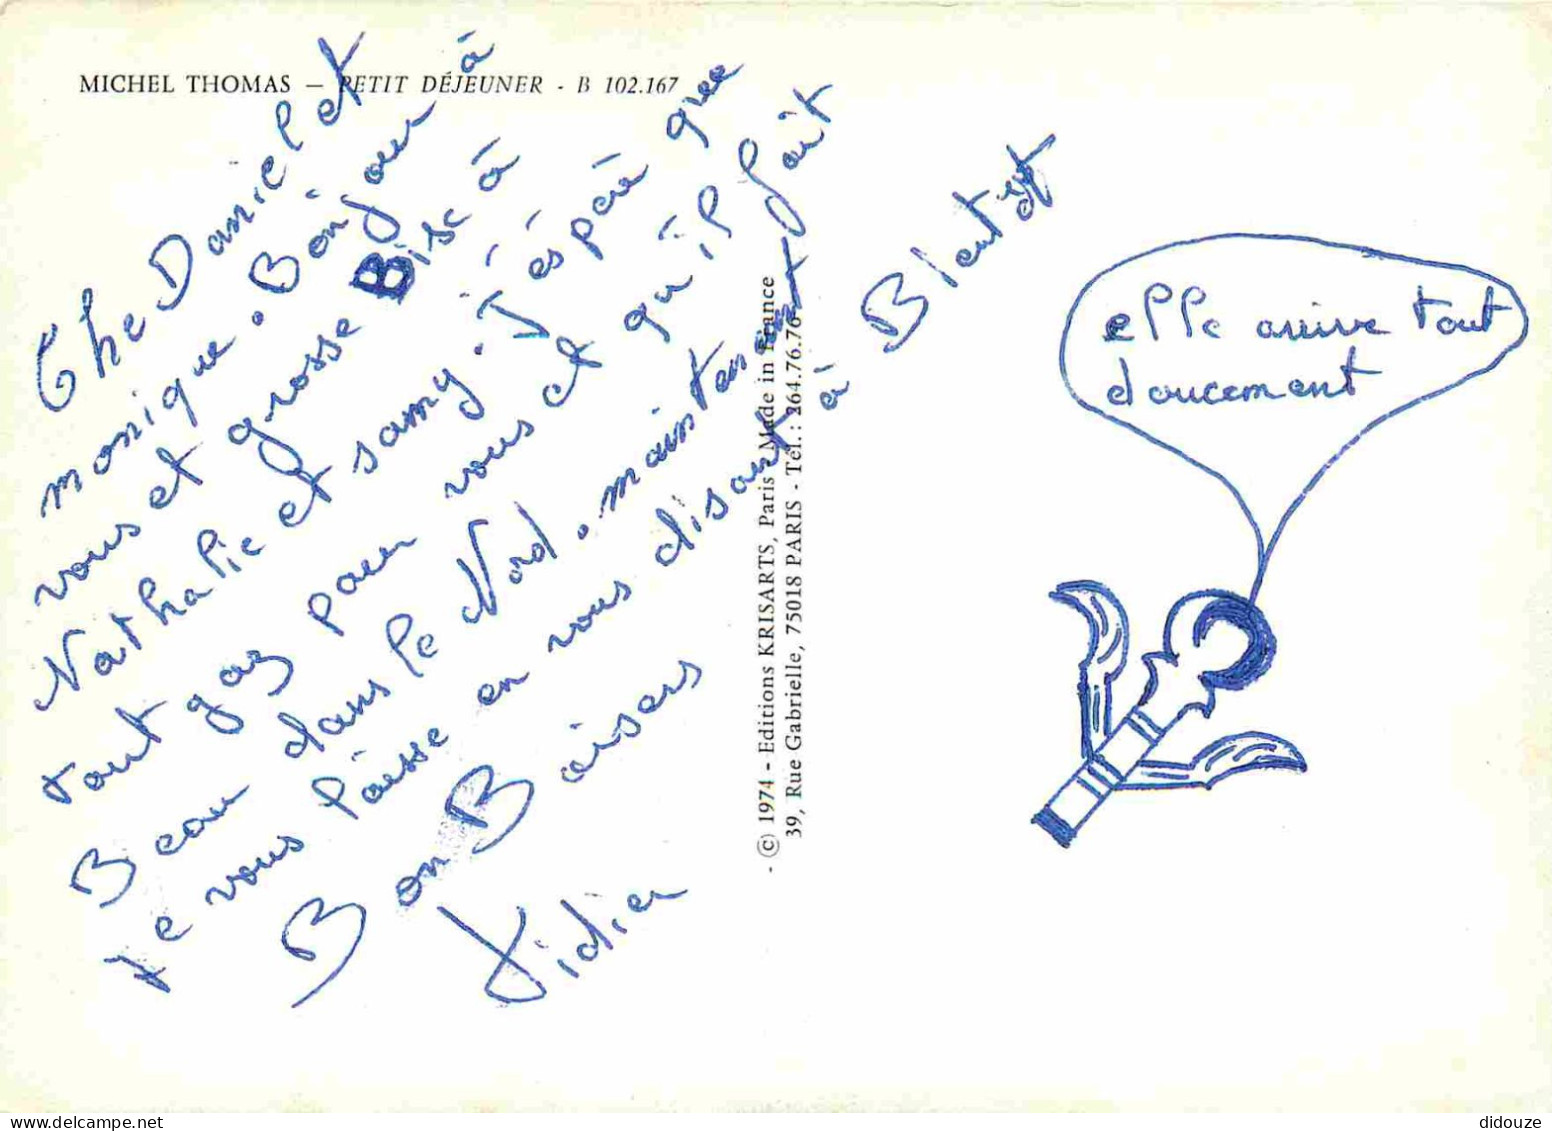 MICHEL THOMAS – PETIT DÉJEUNER - B 102.167
Che Daniel et
monique. Bonjour à
vous et grosse Bise à
Nathalie et samy. J'éspére que
tout gaz pour vous et qu'il fait
Beau dans le Nord. maintenant
je vous laisse en vous disant à Bientot
Bon Baisers
Didier
- © 1974 - Editions KRISARTS, Paris Made in France
39, Rue Gabrielle, 75018 PARIS - Tél.: 264.76.76
elle arrive tout
doucement
didouze